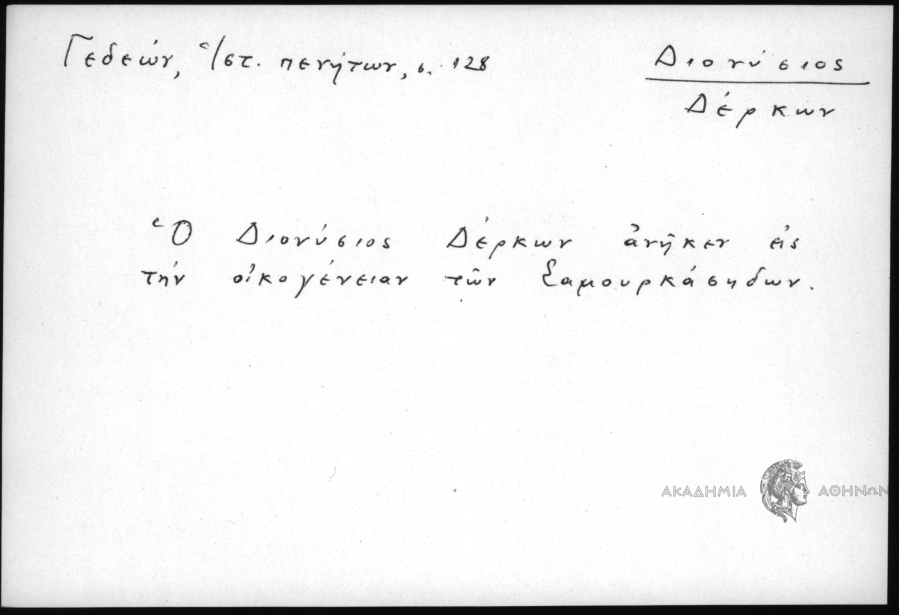 Γεδεών, Ἱστ. πενήτων, σ. 128
Διονύσιος
Δέρκων
Ὁ Διονύσιος Δέρκων ἀνῆκεν εἰς
τὴν οἰκογένειαν τῶν Σαμουρκάσηδων.
ΑΚΑΔΗΜΙΑ ΑΘΗΝΩΝ